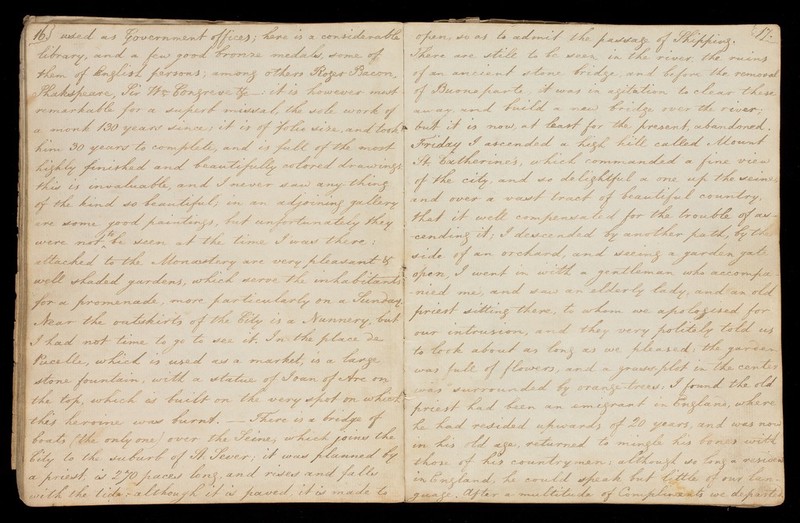 16.
used as Government offices; here is a considerable
library, and a few good bronze medals, some of
them of English persons; among others Roger Bacon,
Shakspeare, Sir Wm Congreve &c — it is however most
remarkable for a superb missal, the sole work of
a monk 130 years since; it is of folio size, and took
him 30 years to complete, and is full of the most
highly finished and beautifully colored drawings
this is invaluable, and I never saw any thing
of the kind so beautiful; in an adjoining gallery
are some good paintings, but unfortunately they
were not to be seen at the time I was there;
attached to the Monastery are very pleasant &
well shaded gardens, which serve the inhabitants
for a promenade, more particularly on a Sunday
Near the outskirts of the City is a Nunnery, but
I had not time to go to see it. In the place de
Pucelle, which is used as a market, is a large
stone fountain, with a statue of Joan of Arc on
the top, which is built on the very spot on which
this heroine was burnt. — There is a bridge of
boats (the only one) over the Seine, which joins the
City to the suburb of St. Sever; it was planned by
a priest, is 270 paces long, and rises and falls
with the tide; although it is paved it is made to
17.
open, so as to admit the passage of Shipping.
There are still to be seen in the river, the ruins
of an ancient stone bridge, and before the removal
of Buonaparte it was in agitation to clear these
away and build a new bridge over the river;
but it is now, at least for the present, abandoned.
Friday I ascended a high hill called Mount
St. Catherine's, which commanded a fine view
of the city, and so delightful a one up the seine,
and over a vast tract of beautiful country,
that it well compensated for the trouble of as-
cending it; I descended by another path, by the
side of an orchard, and seeing a garden gate
open, I went in with a gentleman who accompa-
nied me, and saw an elderly lady, and an old
priest sitting there, to whom we apologised for
our intrusion, and they very politely told us
to look about as long as we pleased; the garden
was full of flowers, and a grass plot in the center
was surrounded by orange trees; I found the old
priest had been an emigrant in England, where
he had resided upwards of 20 years, and was now
in his old age, returned to mingle his bones with
those of his countrymen; although so long a
in England, he could speak but little of our lan-
guage. After a multitude of Compliments we departed